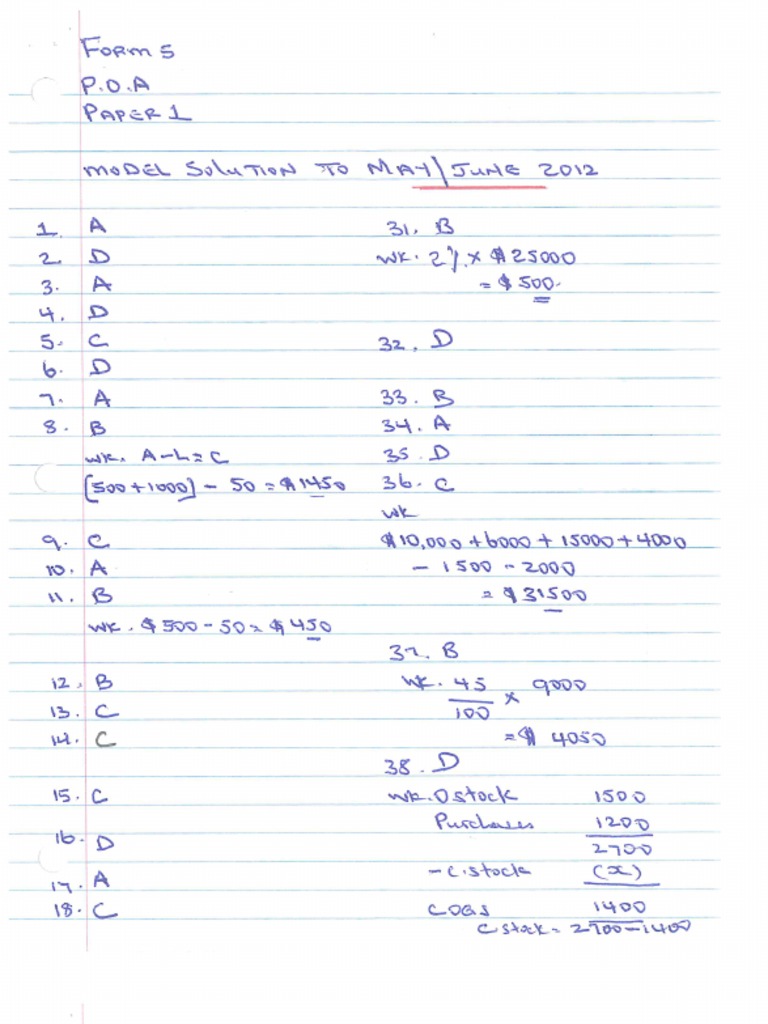 Form 5
P.O.A
PAPER 1
MODEL SOLUTION TO MAY/JUNE 2012
1. A
2. D
3. A
4. D
5. C
6. D
7. A
8. B
WK. A-L=C
[500+1000] - 50 = $1450
9. C
10. A
11. B
WK. $500-50=$450
12. B
13. C
14. C
15. C
16. D
17. A
18. C
31. B
WK. 2% x $25000
= $500
32. D
33. B
34. A
35. D
36. C
WK
$10,000 + 6000 + 15000 + 4000
- 1500 - 2000
= $31500
37. B
WK. 45/100 x 9000
= $4050
38. D
WK. O stock 1500
Purchases 1200
2700
- C.stock (x)
COGS 1400
C stock = 2700-1400